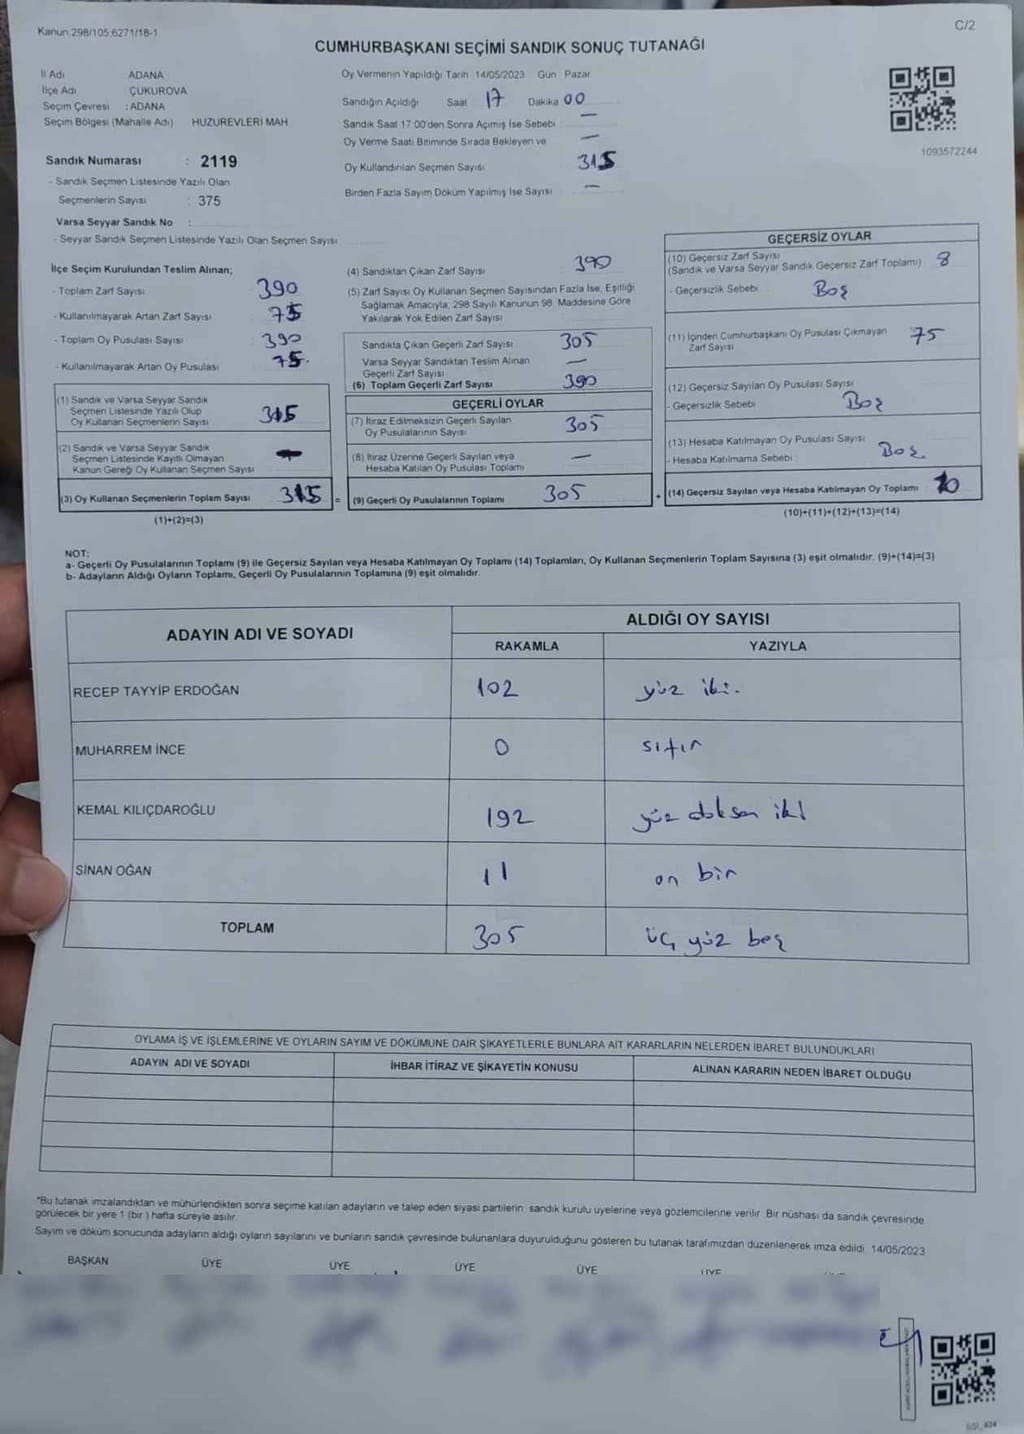 Kanun:298/105 6271/18-1
C/2
CUMHURBAŞKANI SEÇİMİ SANDIK SONUÇ TUTANAĞI
İl Adı ADANA
İlçe Adı ÇUKUROVA
Seçim Çevresi : ADANA
Seçim Bölgesi (Mahalle Adı) HUZUREVLERİ MAH
Sandık Numarası : 2119
- Sandık Seçmen Listesinde Yazılı Olan
Seçmenlerin Sayısı : 375
Varsa Seyyar Sandık No :
- Seyyar Sandık Seçmen Listesinde Yazılı Olan Seçmen Sayısı
Oy Vermenin Yapıldığı Tarih 14/05/2023 Gün Pazar
Sandığın Açıldığı Saat 17 Dakika 00
Sandık Saat 17:00'den Sonra Açımış İse Sebebi —
Oy Verme Saati Bitiminde Sırada Bekleyen ve —
Oy Kullandırılan Seçmen Sayısı 315
Birden Fazla Sayım Döküm Yapılmış İse Sayısı —
1093572244
İlçe Seçim Kurulundan Teslim Alınan;
- Toplam Zarf Sayısı 390
- Kullanılmayarak Artan Zarf Sayısı 75
- Toplam Oy Pusulası Sayısı 390
- Kullanılmayarak Artan Oy Pusulası 75.
(1) Sandık ve Varsa Seyyar Sandık
Seçmen Listesinde Yazılı Olup
Oy Kullanan Seçmenlerin Sayısı 315
(2) Sandık ve Varsa Seyyar Sandık
Seçmen Listesinde Kayıtlı Olmayan
Kanun Gereği Oy Kullanan Seçmen Sayısı —
(3) Oy Kullanan Seçmenlerin Toplam Sayısı 315 =
(1)+(2)=(3)
(4) Sandıktan Çıkan Zarf Sayısı 390
(5) Zarf Sayısı Oy Kullanan Seçmen Sayısından Fazla İse, Eşitliği
Sağlamak Amacıyla, 298 Sayılı Kanunun 98. Maddesine Göre
Yakılarak Yok Edilen Zarf Sayısı
Sandıkta Çıkan Geçerli Zarf Sayısı 305
Varsa Seyyar Sandıktan Teslim Alınan
Geçerli Zarf Sayısı —
(6) Toplam Geçerli Zarf Sayısı 390
GEÇERLİ OYLAR
(7) İtiraz Edilmeksizin Geçerli Sayılan
Oy Pusulalarının Sayısı 305
(8) İtiraz Üzerine Geçerli Sayılan veya
Hesaba Katılan Oy Pusulası Toplamı —
(9) Geçerli Oy Pusulalarının Toplamı 305 +
GEÇERSİZ OYLAR
(10) Geçersiz Zarf Sayısı
(Sandık ve Varsa Seyyar Sandık Geçersiz Zarf Toplamı) 8
- Geçersizlik Sebebi Boş
(11) İçinden Cumhurbaşkanı Oy Pusulası Çıkmayan
Zarf Sayısı 75
(12) Geçersiz Sayılan Oy Pusulası Sayısı
- Geçersizlik Sebebi Boş
(13) Hesaba Katılmayan Oy Pusulası Sayısı
- Hesaba Katılmama Sebebi Boş.
(14) Geçersiz Sayılan veya Hesaba Katılmayan Oy Toplamı 10
(10)+(11)+(12)+(13)=(14)
NOT:
a- Geçerli Oy Pusulalarının Toplamı (9) ile Geçersiz Sayılan veya Hesaba Katılmayan Oy Toplamı (14) Toplamları, Oy Kullanan Seçmenlerin Toplam Sayısına (3) eşit olmalıdır. (9)+(14)=(3)
b- Adayların Aldığı Oyların Toplamı, Geçerli Oy Pusulalarının Toplamına (9) eşit olmalıdır.
ADAYIN ADI VE SOYADI
ALDIĞI OY SAYISI
RAKAMLA YAZIYLA
RECEP TAYYİP ERDOĞAN 102 yüz iki.
MUHARREM İNCE 0 sıfır
KEMAL KILIÇDAROĞLU 192 yüz doksan iki
SİNAN OĞAN 11 on bir
TOPLAM 305 üç yüz beş
OYLAMA İŞ VE İŞLEMLERİNE VE OYLARIN SAYIM VE DÖKÜMÜNE DAİR ŞİKAYETLERLE BUNLARA AİT KARARLARIN NELERDEN İBARET BULUNDUKLARI
ADAYIN ADI VE SOYADI İHBAR İTİRAZ VE ŞİKAYETİN KONUSU ALINAN KARARIN NEDEN İBARET OLDUĞU
*Bu tutanak imzalandıktan ve mühürlendikten sonra seçime katılan adayların ve talep eden siyasi partilerin sandık kurulu üyelerine veya gözlemcilerine verilir. Bir nüshası da sandık çevresinde
görülecek bir yere 1 (bir ) hafta süreyle asılır.
Sayım ve döküm sonucunda adayların aldığı oyların sayılarını ve bunların sandık çevresinde bulunanlara duyurulduğunu gösteren bu tutanak tarafımızdan düzenlenerek imza edildi. 14/05/2023
BAŞKAN ÜYE ÜYE ÜYE ÜYE ÜYE ÜYE